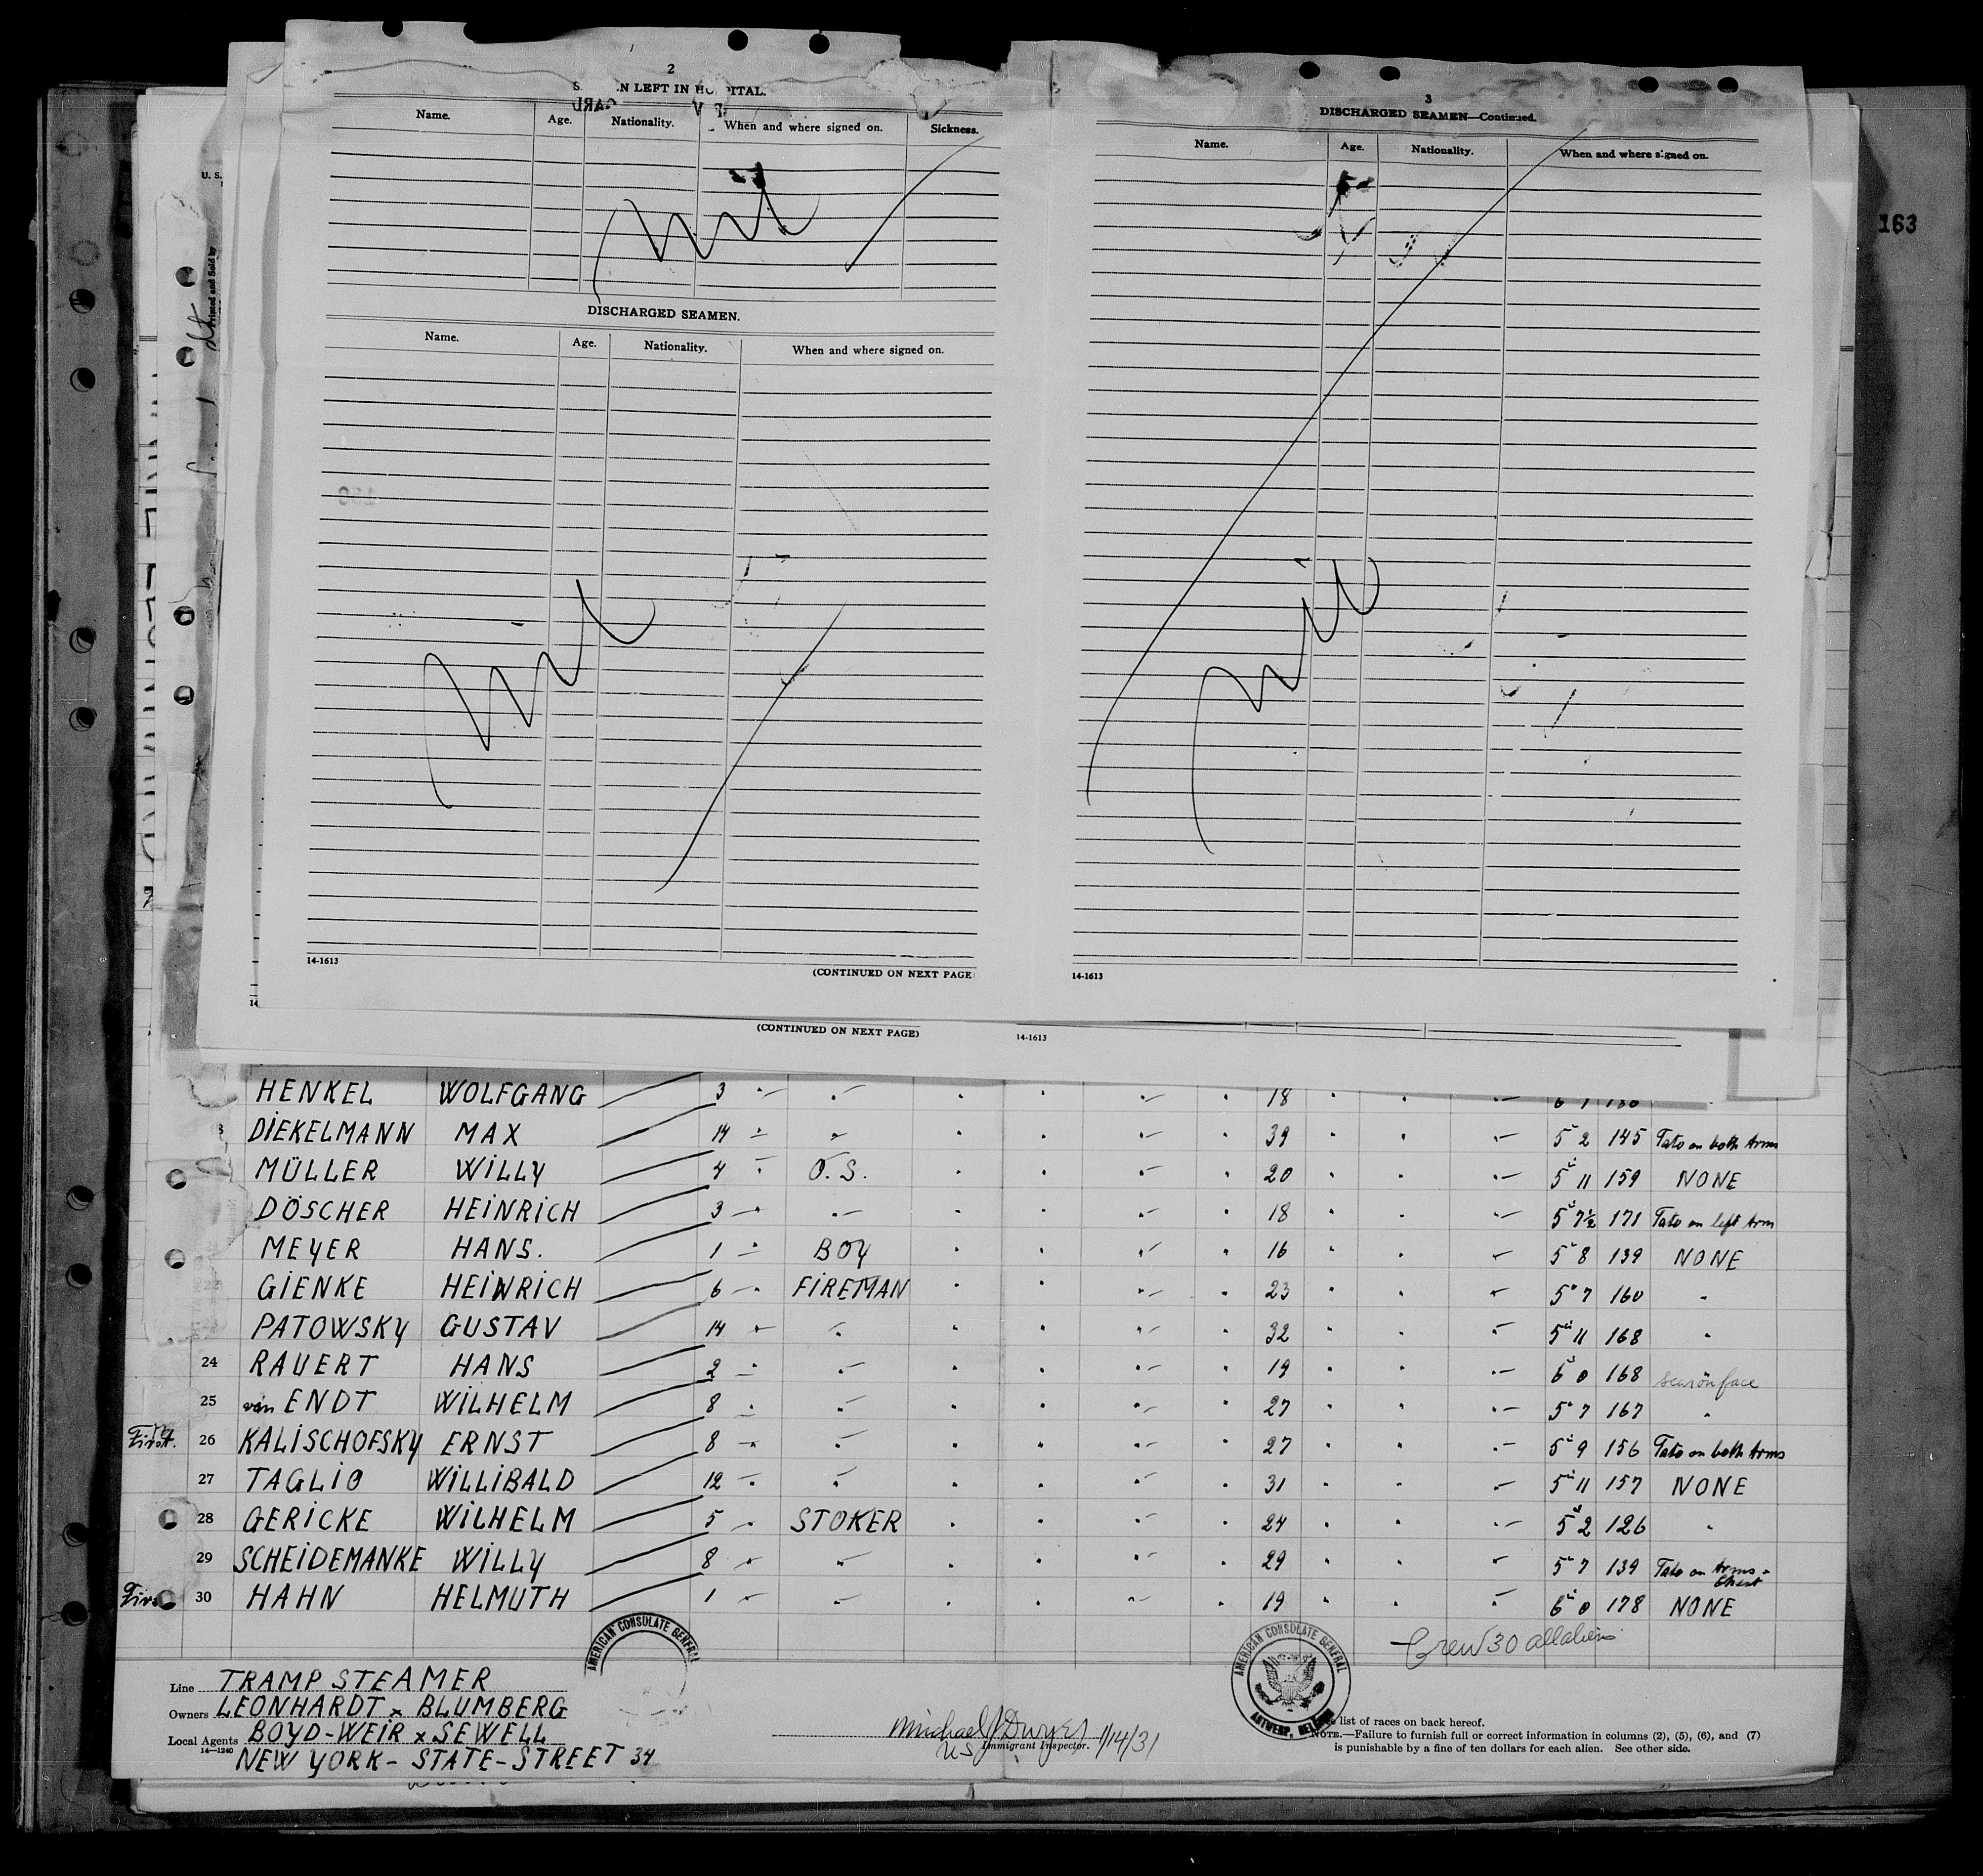 163
2
LEFT IN HOSPITAL.
Name. Age. Nationality. When and where signed on. Sickness.
Nil
DISCHARGED SEAMEN.
Name. Age. Nationality. When and where signed on.
Nil
14-1613
(CONTINUED ON NEXT PAGE
3
DISCHARGED SEAMEN—Continued.
Name. Age. Nationality. When and where signed on.
Nil
14-1613
(CONTINUED ON NEXT PAGE)
14-1613
U. S.
Printed and Sold by
HENKEL WOLFGANG 3 18
DIEKELMANN MAX 14 39 5 2 145 Tato on both Arms
MÜLLER WILLY 4 O.S. 20 5 11 159 NONE
DÖSCHER HEINRICH 3 18 5 7½ 171 Tato on left Arm
MEYER HANS. 1 BOY 16 5 8 139 NONE
GIENKE HEINRICH 6 FIREMAN 23 5 7 160 "
PATOWSKY GUSTAV 14 32 5 11 168 "
24 RAUERT HANS 2 19 6 0 168 scar on face
25 van ENDT WILHELM 8 27 5 7 167 "
First. 26 KALISCHOFSKY ERNST 8 27 5 9 156 Tato on both Arms
27 TAGLIO WILLIBALD 12 31 5 11 157 NONE
28 GERICKE WILHELM 5 STOKER 24 5 2 126 "
29 SCHEIDEMANKE WILLY 8 29 5 7 139 Tato on Arms - Chest
30 HAHN HELMUTH 1 19 6 0 178 NONE
Crew 30 all aliens
AMERICAN CONSULATE GENERAL
AMERICAN CONSULATE GENERAL
ANTWERP, BELGIUM
Line TRAMP STEAMER
Owners LEONHARDT x BLUMBERG
Local Agents BOYD-WEIR x SEWELL
14-1240
NEW YORK - STATE-STREET 34
Michael J Dwyer 1/14/31
US Immigrant Inspector.
list of races on back hereof.
NOTE.—Failure to furnish full or correct information in columns (2), (5), (6), and (7)
is punishable by a fine of ten dollars for each alien. See other side.